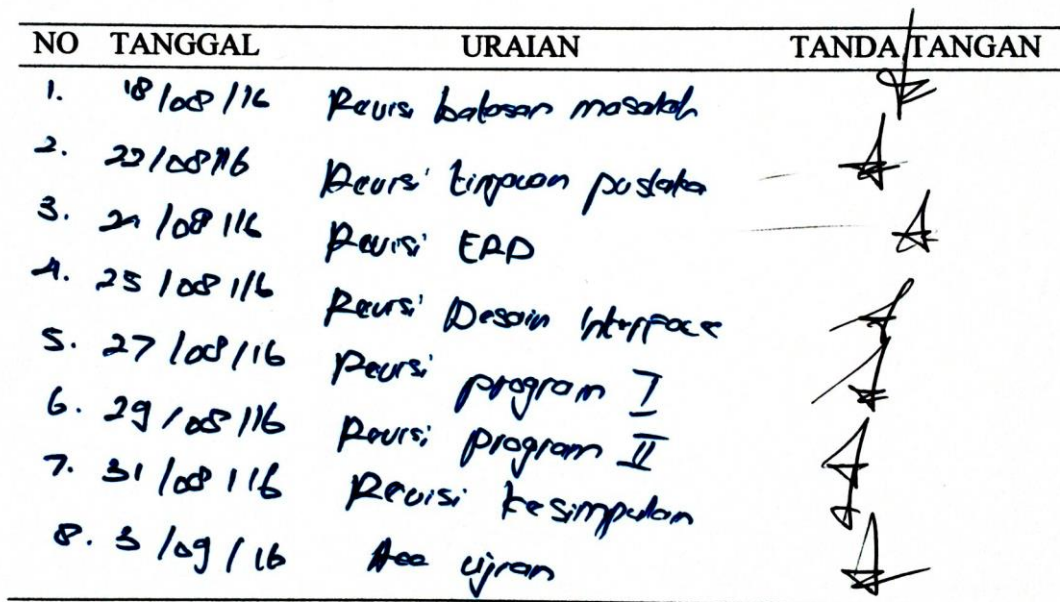 NO TANGGAL URAIAN TANDA TANGAN
1. 18/08/16 Revisi batasan masalah
2. 22/08/16 Revisi tinjauan pustaka
3. /08/16 Revisi ERD
4. 25/08/16 Revisi Desain Interface
5. 27/08/16 Revisi program I
6. 29/08/16 Revisi program II
7. 31/08/16 Revisi kesimpulan
8. 3/09/16 Acc ujian